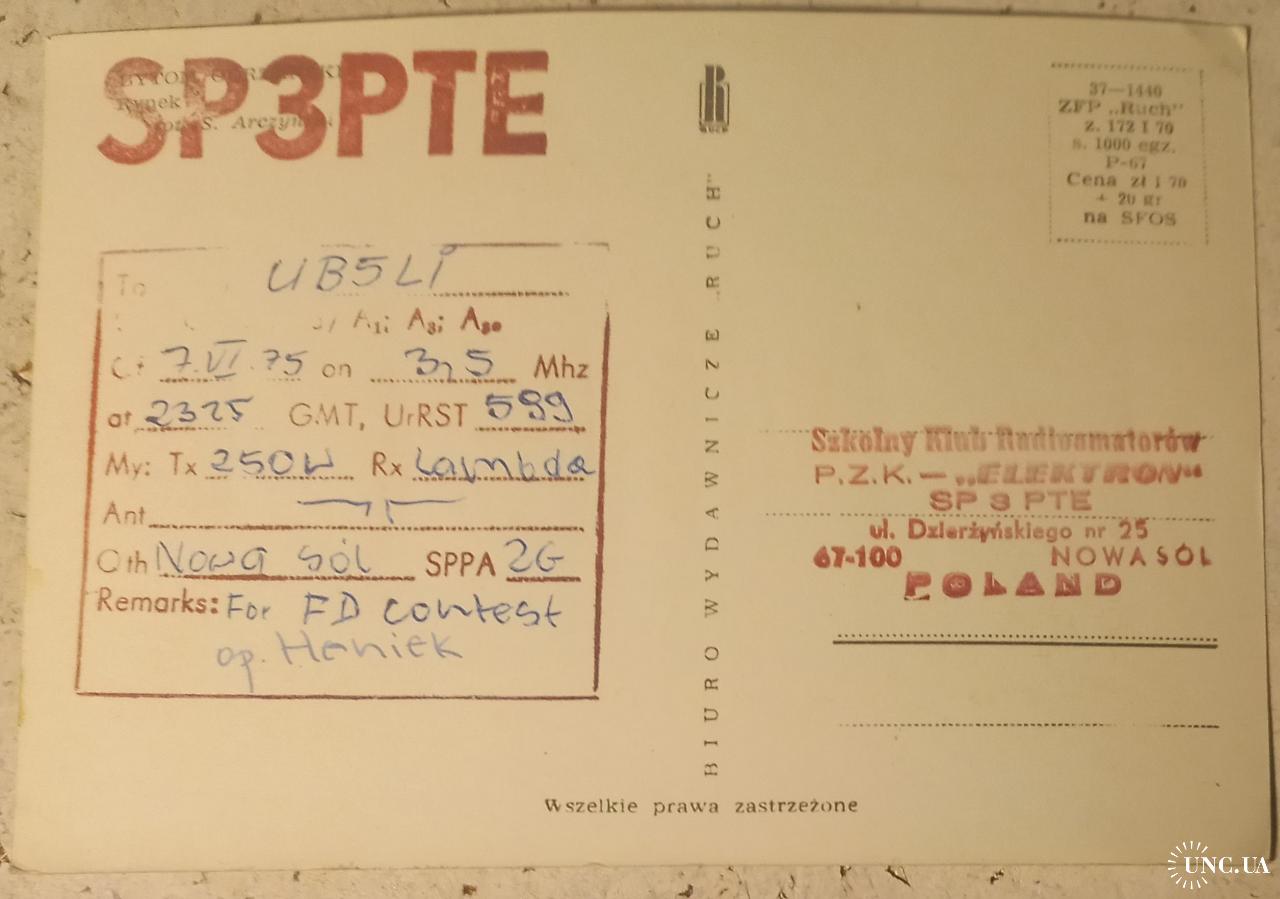 SP3PTE
Rynek
fot. S. Arczyński
RUCH
37—1440
ZFP „Ruch"
z. 172 I 70
s. 1000 egz.
P-67
Cena zł 1 70
+ 20 gr
na SFOS
To UB5LI
A1; A3; A3a
7.VI.75 on 3,5 Mhz
at 2325 GMT, UrRST 599
My: Tx 250W Rx Lambda
Ant
Qth Nowa Sól SPPA 2G
Remarks: For FD contest
op. Heniek
BIURO WYDAWNICZE „RUCH"
Szkolny Klub Radioamatorów
P.Z.K. — „ELEKTRON"
SP 3 PTE
ul. Dzierżyńskiego nr 25
67-100 NOWA SÓL
POLAND
Wszelkie prawa zastrzeżone
UNC.UA